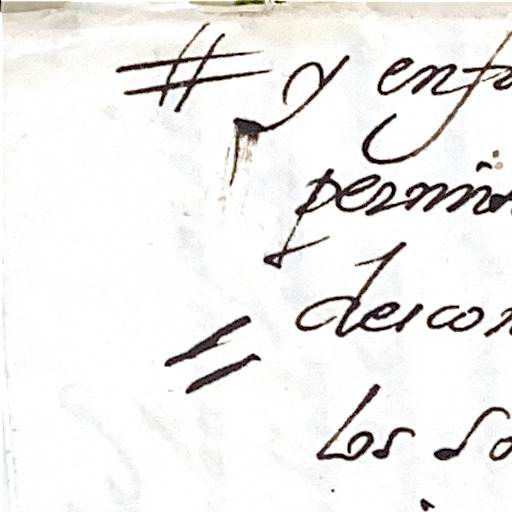 # y enfu
permi
descon
= los so